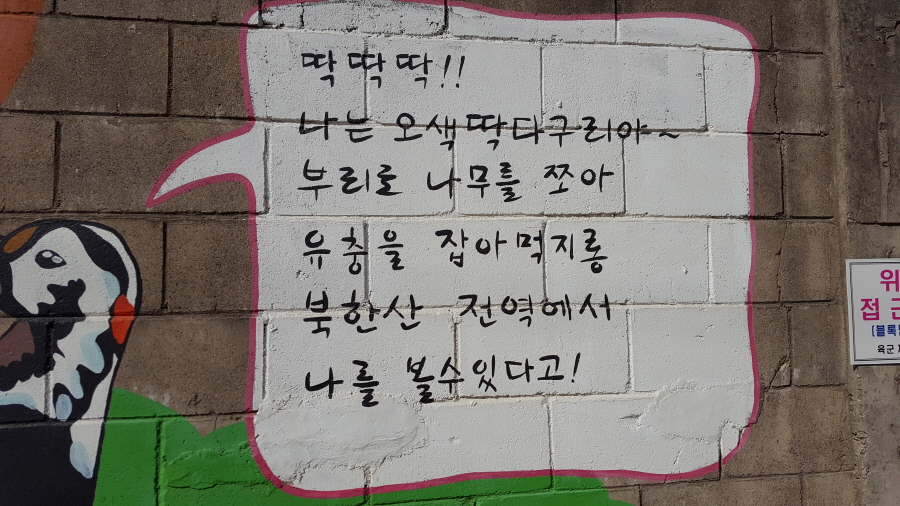 딱딱딱!!
나는 오색딱다구리야~
부리로 나무를 쪼아
유충을 잡아먹지롱
북한산 전역에서
나를 볼수있다고!
위
접 근
(블록
육군